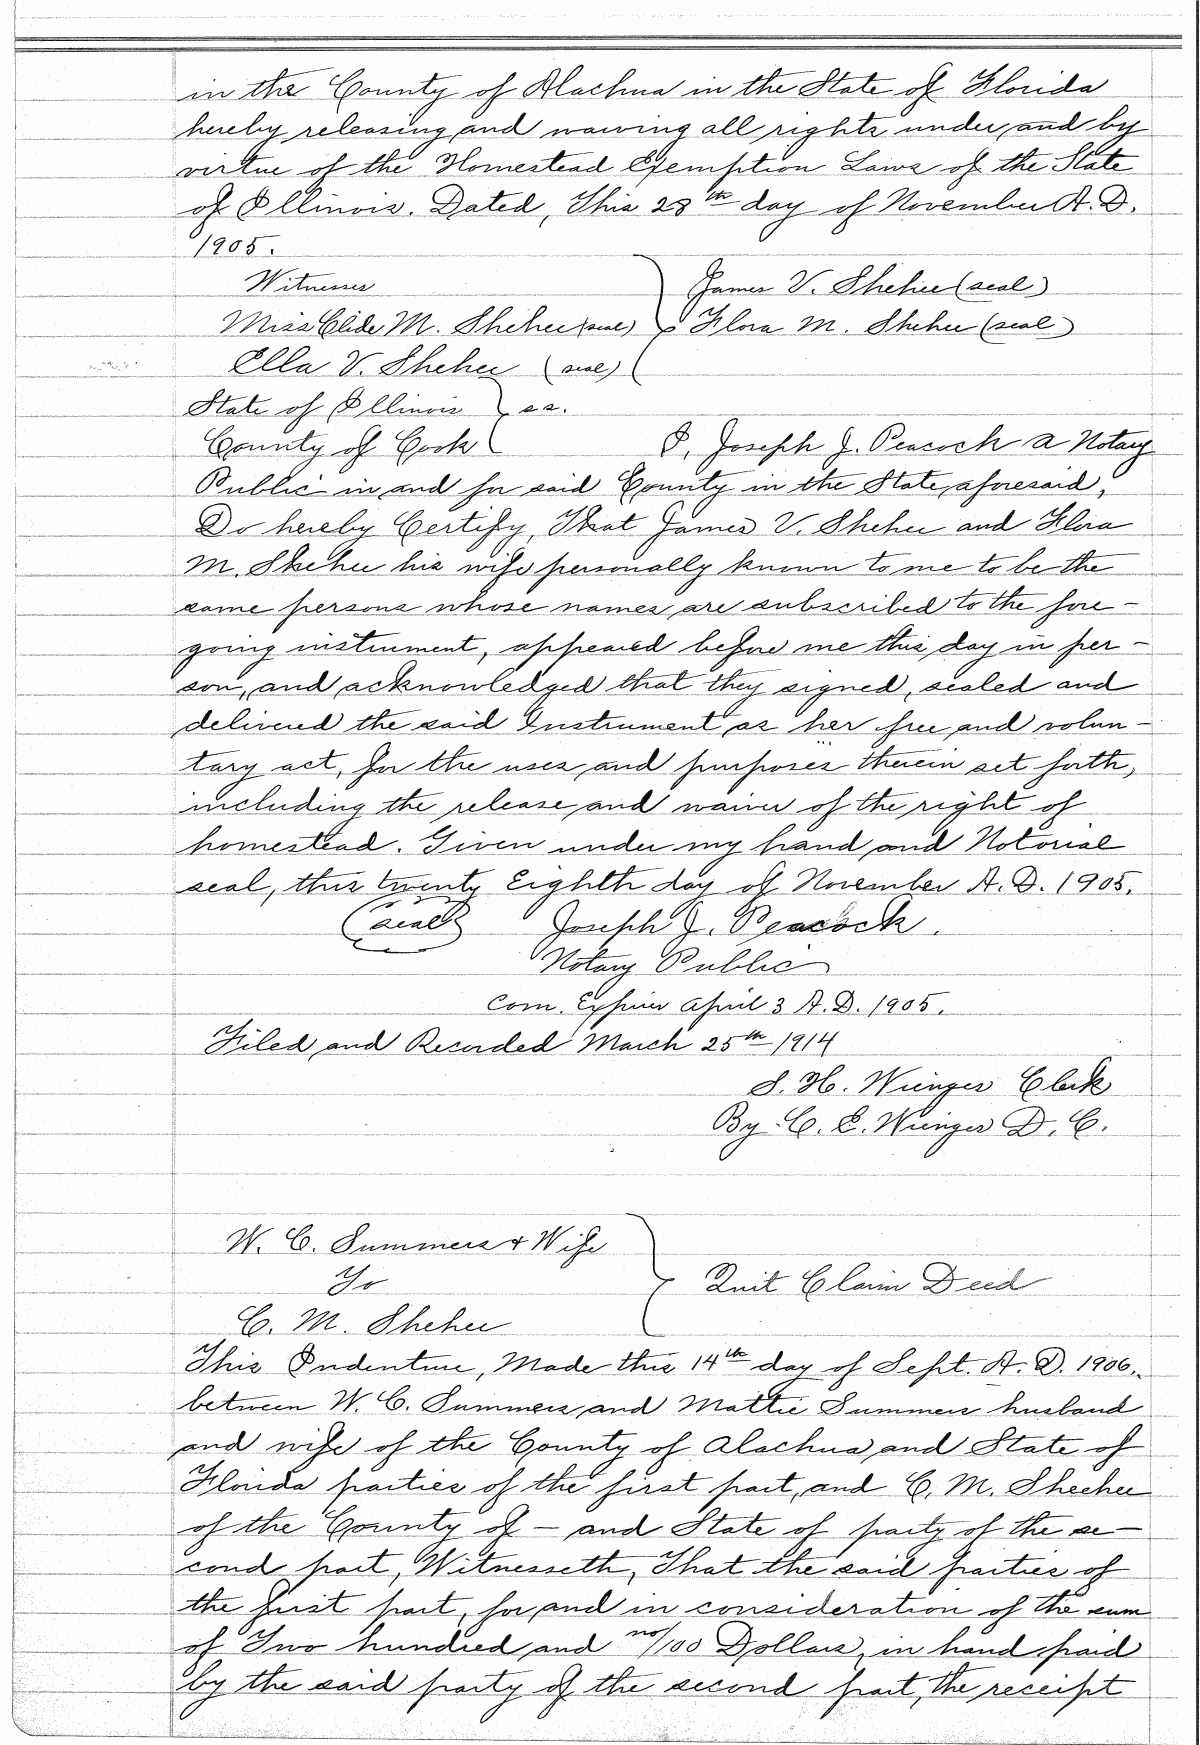 in the County of Alachua in the State of Florida
hereby releasing and waiving all rights under and by
virtue of the Homestead Exemption Laws of the State
of Illinois. Dated, This 28th day of November A.D.
1905.
Witnesses James V. Shehee (seal)
Miss Clide M. Shehee (seal) Flora M. Shehee (seal)
Ella V. Shehee (seal)
State of Illinois ss.
County of Cook I, Joseph J. Peacock a Notary
Public in and for said County in the State aforesaid,
Do hereby Certify, That James V. Shehee and Flora
M. Shehee his wife personally known to me to be the
same persons whose names are subscribed to the fore-
going instrument, appeared before me this day in per-
son, and acknowledged that they signed, sealed and
delivered the said Instrument as her free and volun-
tary act, for the uses and purposes therein set forth,
including the release and waiver of the right of
homestead. Given under my hand and Notorial
seal, this twenty Eighth day of November A.D. 1905.
(seal) Joseph J. Peacock.
Notary Public
Com. Expires April 3 A.D. 1905.
Filed and Recorded March 25th 1914
S. H. Wienges Clerk
By C. E. Wienges D. C.
W. C. Summers & Wife
To Quit Claim Deed
C. M. Shehee
This Indenture, Made this 14th day of Sept. A.D. 1906.
between W. C. Summers and Mattie Summers husband
and wife of the County of Alachua and State of
Florida parties of the first part, and C. M. Sheehee
of the County of - and State of party of the se-
cond part, Witnesseth, That the said parties of
the first part, for and in consideration of the sum
of Two hundred and no/100 Dollars, in hand paid
by the said party of the second part, the receipt